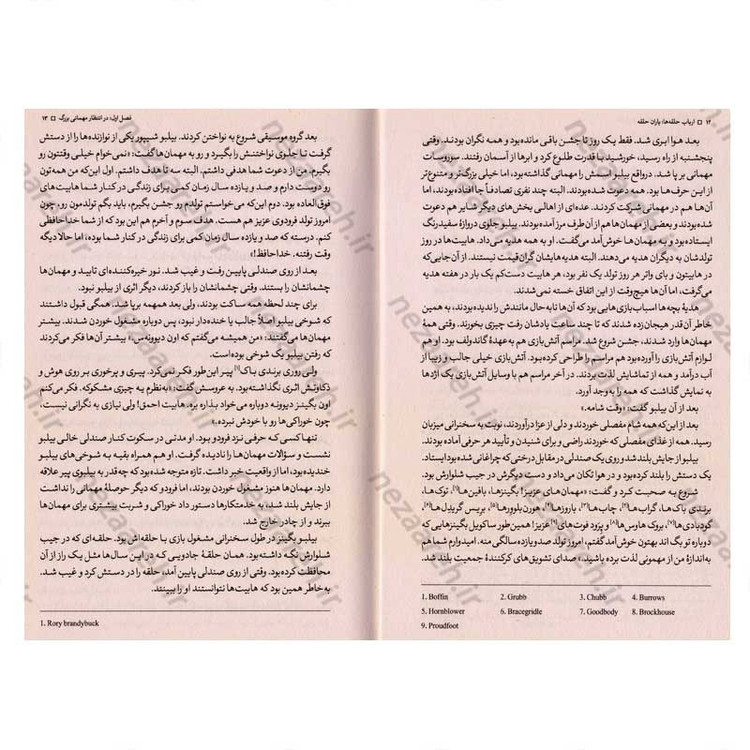 ۱۲ □ ارباب حلقه‌ها: یاران حلقه
بعد هوا ابری شد. فقط یک روز تا جشن باقی مانده بود و همه نگران بودند. وقتی
پنجشنبه از راه رسید، خورشید با قدرت طلوع کرد و ابرها از آسمان رفتند. سوروسات
مهمانی برپا شد. درواقع بیلبو اسمش را مهمانی گذاشته بود، اما خیلی بزرگ‌تر و متنوع‌تر
از این حرف‌ها بود. همه دعوت شده بودند، البته چند نفری تصادفاً جا افتاده بودند، اما
آن‌ها هم در مهمانی شرکت کردند. عده‌ای از اهالی بخش‌های دیگر شایر هم دعوت
شده بودند و بعضی از مهمان‌ها هم از آن طرف مرز آمده بودند. بیلبو جلوی دروازهٔ سفیدرنگ
ایستاده بود و به مهمان‌ها خوش‌آمد می‌گفت. او به همه هدیه می‌داد. هابیت‌ها در روز
تولدشان به دیگران هدیه می‌دهند. البته هدیه‌هایشان گران‌قیمت نیستند. از آن‌جایی که
در هابیتون و بای واتر هر روز تولد یک نفر بود، هر هابیت دست‌کم یک بار در هفته هدیه
می‌گرفت، اما آن‌ها هیچ‌وقت از این اتفاق خسته نمی‌شدند.
هدیهٔ بچه‌ها اسباب‌بازی‌هایی بود که آن‌ها تا به‌حال مانندش را ندیده بودند، به همین
خاطر آن‌قدر هیجان‌زده شدند که تا چند ساعت یادشان رفت چیزی بخورند. وقتی همهٔ
مهمان‌ها وارد شدند، جشن شروع شد. مراسم آتش‌بازی هم به‌عهدهٔ گاندولف بود. او هم
لوازم آتش‌بازی را آورده بود هم مراسم را طراحی کرده بود. آتش‌بازی خیلی جالب و زیبا از
آب درآمد و همه از تماشایش لذت بردند. در آخر مراسم هم با وسایل آتش‌بازی یک اژدها
به نمایش گذاشت که همه را به وجد آورد.
بعد از آن بیلبو گفت: «وقت شامه.»
بعد از این‌که همه شام مفصلی خوردند و دلی از عزا درآوردند، نوبت به سخنرانی میزبان
رسید. همه از غذای مفصلی که خوردند راضی و برای شنیدن و تأیید هر حرفی آماده بودند.
بیلبو از جایش بلند شد و روی یک صندلی در مقابل درختی که چراغانی شده بود ایستاد.
یک دستش را بلند کرده بود و در هوا تکان می‌داد و دست دیگرش در جیب شلوارش بود.
شروع به صحبت کرد و گفت: «مهمان‌های عزیز! بگینزها، بافین‌ها(۱)، توک‌ها،
برندی باک‌ها، گراب‌ها(۲)، چاب‌ها(۳)، باروزها(۴)، هورن‌بلوورها(۵)، بریس گریدل‌ها(۶)،
گودبادی‌ها(۷)، بروک هاوس‌ها(۸) و پرود فوت‌های(۹) عزیز! همین‌طور ساکویل بگینزهایی که
دوباره تو بگ اند بهتون خوش‌آمد گفتم، امروز تولد صد و یازده سالگی منه. امیدوارم شما هم
به‌اندازهٔ من از مهمونی لذت برده باشید.» صدای تشویق‌های کرکنندهٔ جمعیت بلند شد.
1. Boffin 2. Grubb 3. Chubb 4. Burrows
5. Hornblower 6. Bracegridle 7. Goodbody 8. Brockhouse
9. Proudfoot
فصل اول: در انتظار مهمانی بزرگ □ ۱۳
بعد گروه موسیقی شروع به نواختن کردند. بیلبو شیپور یکی از نوازنده‌ها را از دستش
گرفت تا جلوی نواختنش را بگیرد و رو به مهمان‌ها گفت: «نمی‌خوام خیلی وقتتون رو
بگیرم. من از دعوت شما هدفی داشتم. البته سه تا هدف داشتم. اول این‌که من همه‌تون
رو دوست دارم و صد و یازده سال زمان کمی برای زندگی در کنار شما هابیت‌های
فوق‌العاده بود. دوم این‌که می‌خواستم تولدم رو جشن بگیرم، باید بگم تولدمون رو، چون
امروز تولد فرودوی عزیز هم هست. هدف سوم و آخرم هم این بود که از شما خداحافظی
کنم. درسته که صد و یازده سال زمان کمی برای زندگی در کنار شما بوده، اما حالا دیگه
وقت رفتنه. خداحافظ!»
بعد از روی صندلی پایین رفت و غیب شد. نور خیره‌کننده‌ای تابید و مهمان‌ها
چشمانشان را بستند. وقتی چشمانشان را باز کردند، دیگر اثری از بیلبو نبود.
برای چند لحظه همه ساکت بودند، ولی بعد همهمه برپا شد. همگی قبول داشتند
که شوخی بیلبو اصلاً جالب یا خنده‌دار نبود، پس دوباره مشغول خوردن شدند.
مهمان‌ها می‌گفتند: «من همیشه می‌گفتم که اون دیوونه‌س.» بیشتر آن‌ها فکر می‌کردند
که رفتن بیلبو یک شوخی بوده است.
ولی روری برندی باک(۱) پیر این‌طور فکر نمی‌کرد. پیری و پرخوری بر روی هوش و
ذکاوتش اثری نگذاشته بود. به عروسش گفت: «به‌نظرم یه چیزی مشکوکه. فکر می‌کنم
اون بگینز دیوونه دوباره می‌خواد بذاره بره. هابیت احمق! ولی نیازی به نگرانی نیست،
چون خوراکی‌ها رو با خودش نبرده.»
تنها کسی که حرفی نزد فرودو بود. او مدتی در سکوت کنار صندلی خالی بیلبو
نشست و سؤالات مهمان‌ها را نادیده گرفت. او هم همراه بقیه به شوخی‌های بیلبو
خندیده بود، اما از واقعیت خبر داشت. تازه متوجه شده بود که چه‌قدر به بیلبوی پیر علاقه
دارد. مهمان‌ها هنوز مشغول خوردن بودند، اما فرودو که دیگر حوصلهٔ مهمانی را نداشت
از جایش بلند شد، به خدمتکارها دستور داد خوراکی و شربت بیشتری برای مهمان‌ها
ببرند و از چادر خارج شد.
بیلبو بگینز در طول سخنرانی مشغول بازی با حلقه‌اش بود. حلقه‌ای که در جیب
شلوارش نگه داشته بود. همان حلقهٔ جادویی که در این سال‌ها مثل یک راز از آن
محافظت کرده بود. وقتی از روی صندلی پایین آمد، حلقه را در دستش کرد و غیب شد.
به خاطر همین بود که هابیت‌ها نتوانستند او را ببینند.
1. Rory brandybuck
nezaareh.ir